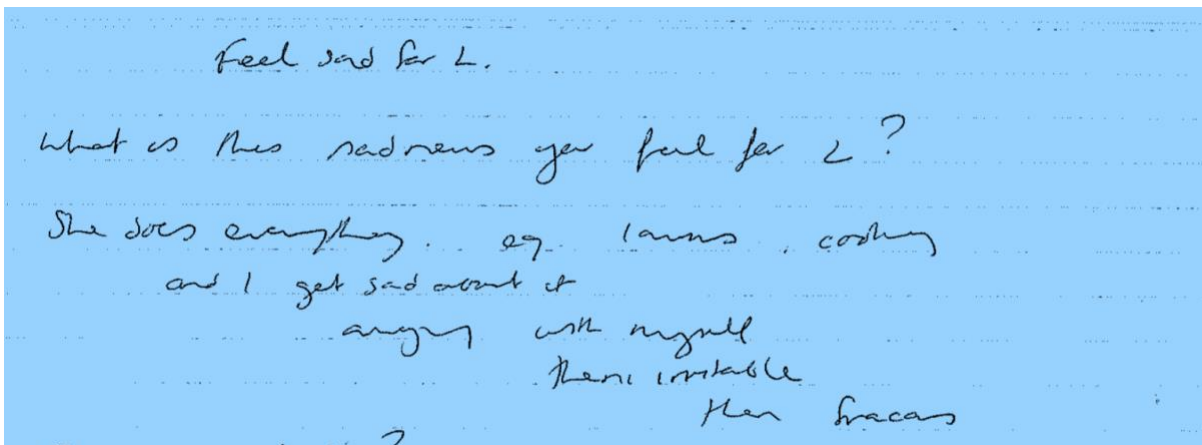 Feel sad for L.
What is this sadness you feel for L?
She does everything. eg. lawns, cooking
and I get sad about it
angry with myself
then irritable
then fracas
?